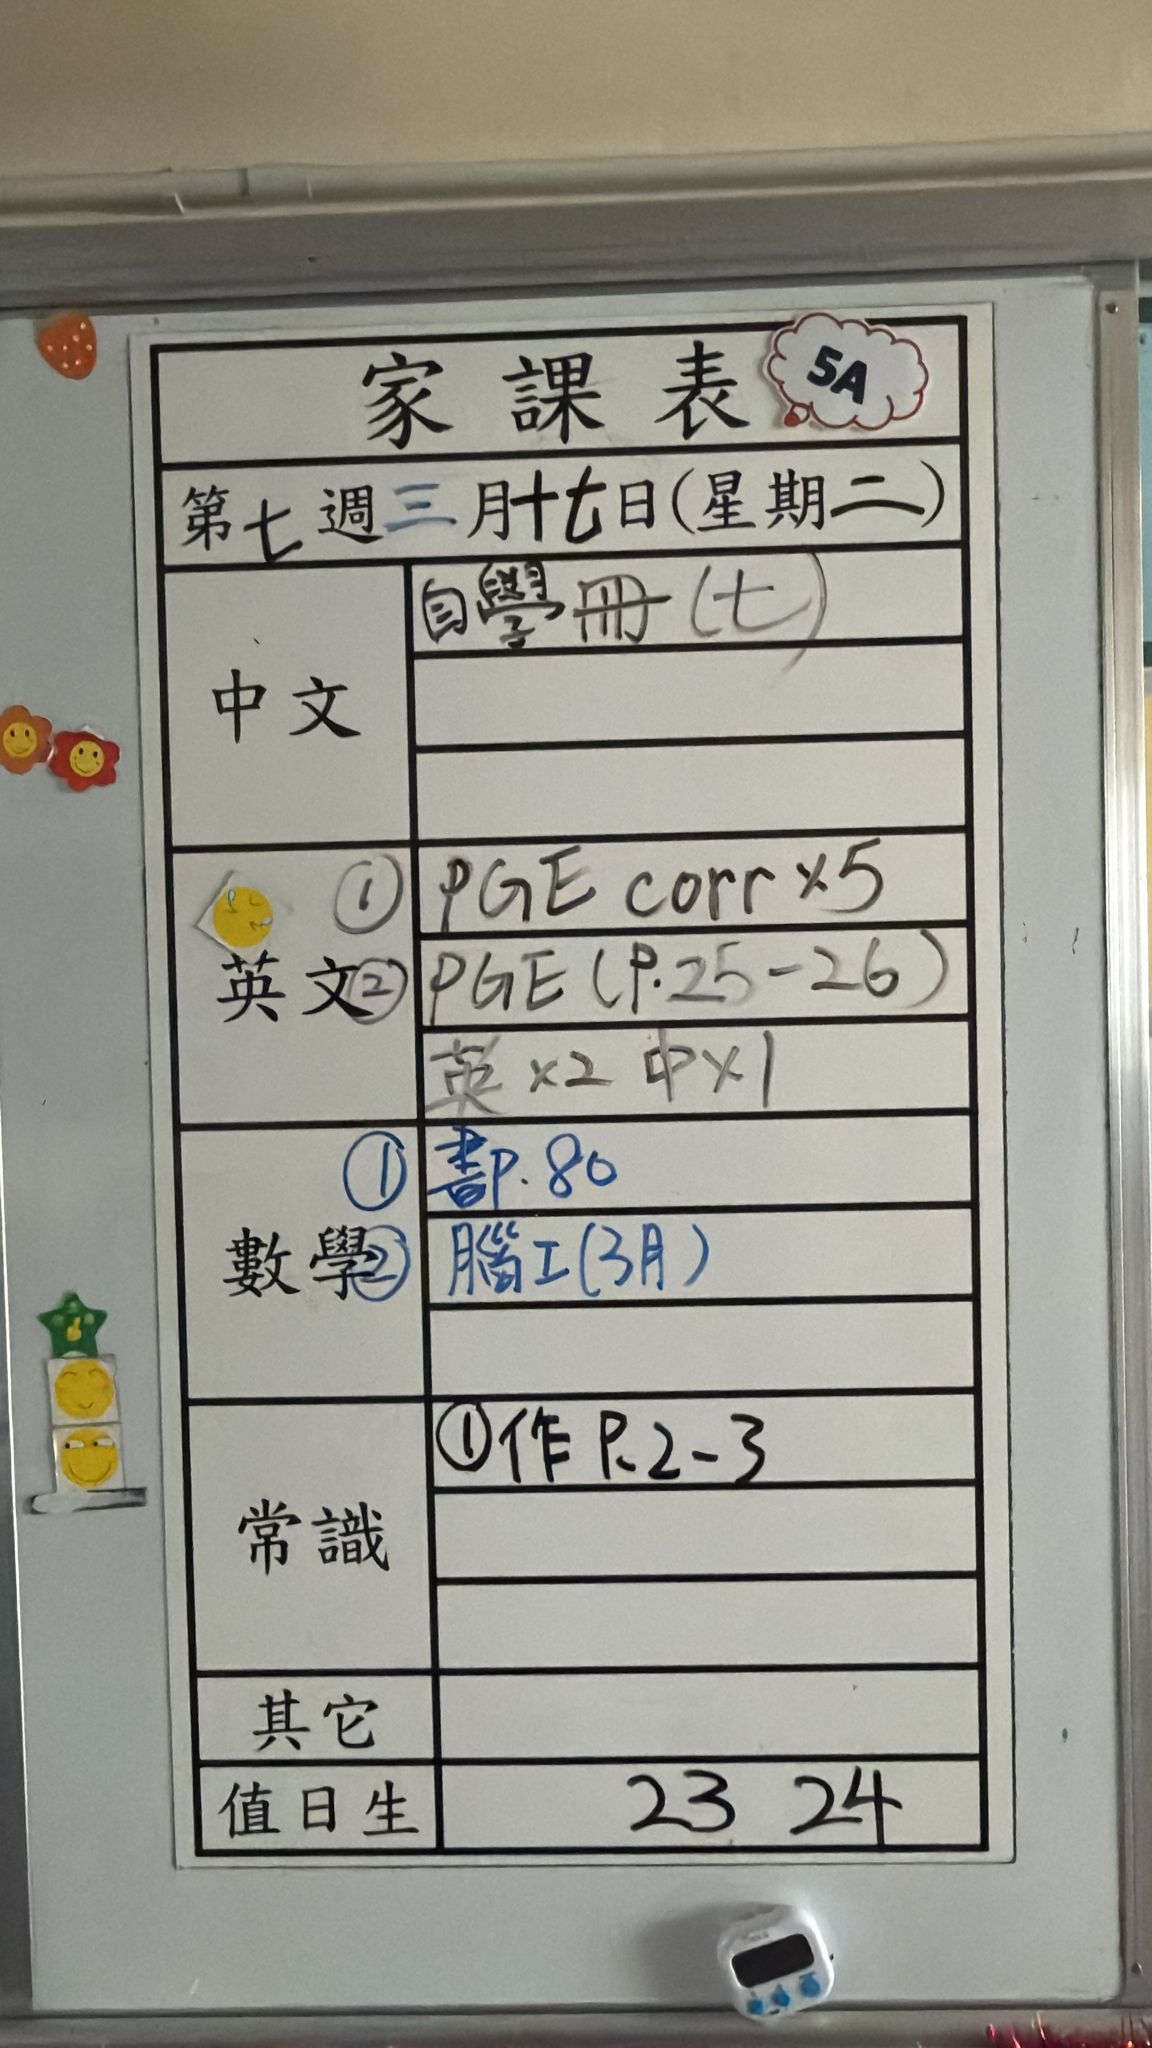 家課表 5A
第七週三月十七日(星期二)
中文
自學冊(七)
英文
① PGE corr x5
② PGE (P.25-26)
英x2 中x1
數學
① 書P.80
② 腦工(3月)
常識
①作 P.2-3
其它
值日生 23 24